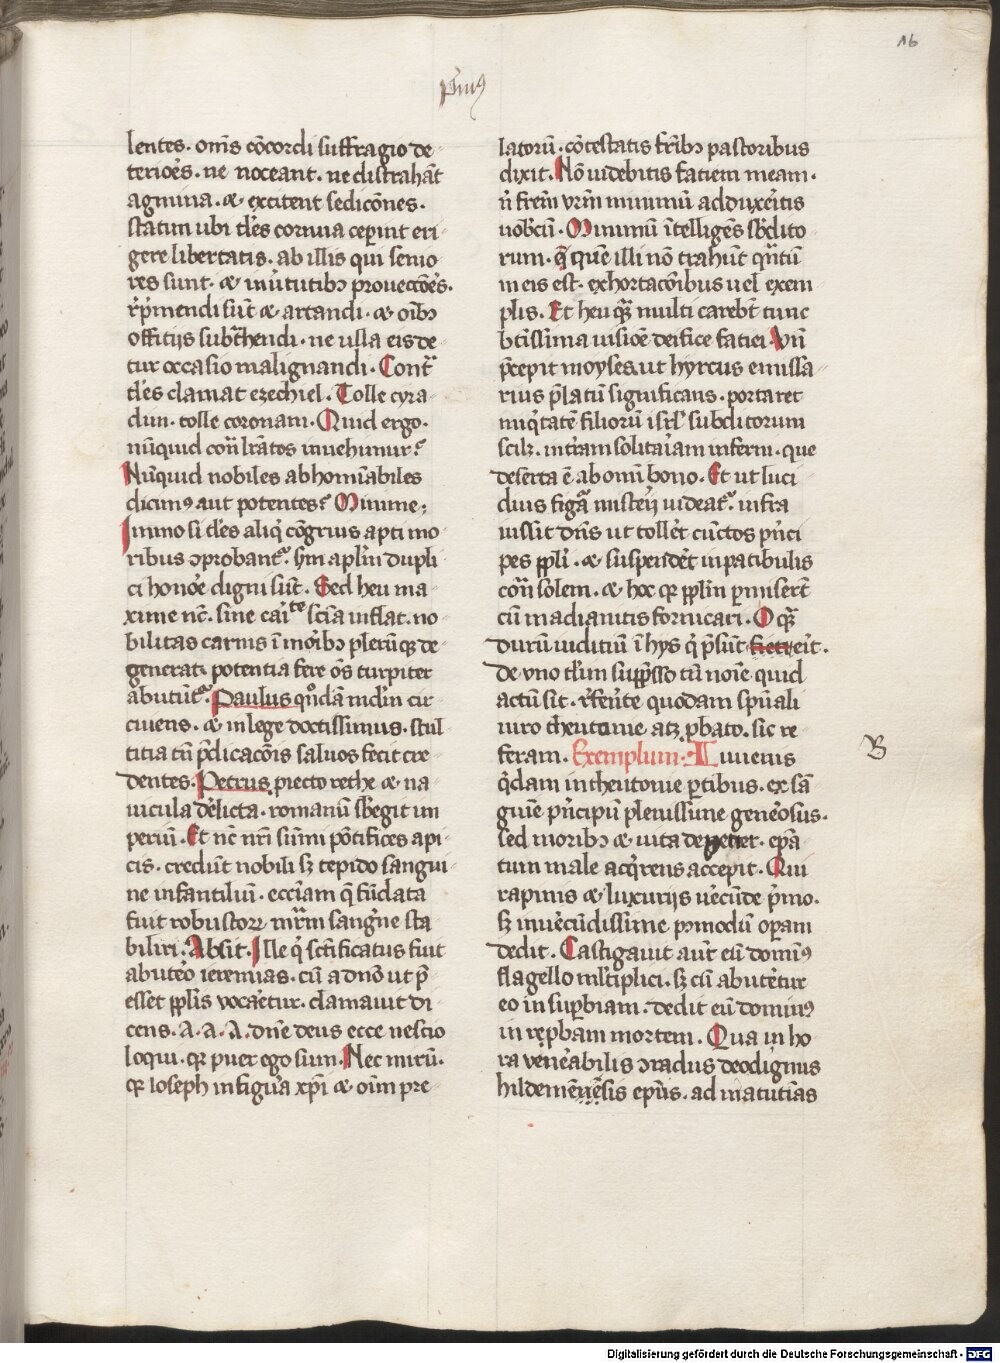 16
p̄mꝰ
lentes. om̄s cōcordi suffragio de-
teriores. ne noceant. ne distrahāt
agmina. et excitent sedicōnes.
statim ubi tles cornua ceperint eri-
gere libertatis. ab illis qui senio-
res sunt. et in virtutibꝫ proueccōes.
rep̄mendi sūt et artandi. et oībꝫ
officijs subt̄hendi. ne ulla eis de-
tur occasio malignandi. Cont̄
tles clamat ezechiel. Tolle cyra-
dun. tolle coronam. Quid ergo.
nūquid cont̄ l̄ratos inuehimur?
Nūquid nobiles abhomīabiles
dicimꝰ aut potentes? Minime.
Immo si tles aliq̄ cōgrius apti mo-
ribus ꝯprobant̄. scd̄m aplm̄ dupli-
ci honore digni sūt. Sed heu ma-
xime nc̄. sine cāitate sciā inflat. no-
bilitas carnis ī moribꝫ plerūqꝫ de-
generat. potentia fere oēs turpiter
abutūt̄. Paulus quōdā mdm̄ cir-
ciuens. et in lege doctissimus. stul-
titia tn̄ p̄dicacōis saluos fecit cre-
dentes. Petrus piecto rethe et na-
uicula derelicta. romanū sbegit im-
perium. Et nc̄ nr̄i summi pōtifices api-
cis. credūt nobili sꝫ tepido sangui-
ne infantilium. eccliam q̄ fūdata
fuit robustorꝝ mr̄m sangne sta-
biliri. Absit. Ille q̄ scīficatus fuit
ab utero ieremias. cū a dno ut p̄-
esset pplis vocaretur. clamauit di-
cens. A. A. A. dn̄e deus ecce nescio
loqui. qꝛ puer ego sum. Nec mirū.
qꝛ Ioseph in figura xp̄i et oīm pre-
latorū. cōtestatis fr̄ibꝫ pastoribus
dixit. Nō uidebitis faciem meam.
n̄ frem̄ vrm̄ minimū adduxeritis
uobcū. Minimū ītelligens sbdito-
rum. q̄ quē illi nō trahūt quātū
in eis est. exhortacōibus uel exem-
plis. Et heu qm̄ multi carebt̄ tunc
btissima uisiōe deifice faciei. Vn̄
p̄cepit moyses. ut hyrcus emissa-
rius p̄latū significans. portaret
iniq̄tatē filiorū isrl̄ subditorum
scilꝫ. in terram solitariam inferni. que
deserta ē ab omī bono. Et ut luci-
dius figura misterij uideat̄. infra
iussit dn̄s ut tolleret cūctos pn̄ci-
pes ppli. et suspenderet in patibulis
cont̄ solem. et hoc qꝛ pplm̄ pmiserēt
cū madianitis fornicari. O qm̄
durū iuditiū ī hys q̄ p̄sūt fieret erit.
De vno tm̄ supp̄sso tn̄ noīe quid
actū sit. referente quodam spūali
uiro theutonie atqꝫ pbato. sic re-
feram. Exemplum. Iuuenis
B
q̄dam in theutonie ptibus. ex sā-
guīe pn̄cipū plenissime generosus.
sed moribꝫ et uita degener. epa-
tum male acq̄rens accepit. Qui
rapinis et luxurijs uerecūde p̄mo.
sꝫ inuerecūdissime pmodū operam
dedit. Castigauit aut̄ eū domīꝰ
flagello ml̄tiplici. sꝫ cū abuteretur
eo in supbiam. dedit eū dominꝰ
in repbam mortem. Qua in ho-
ra venerabilis ꝯradus deo dignus
hildemēnēsis ep̄us. ad matutinas
Digitalisierung gefördert durch die Deutsche Forschungsgemeinschaft - DFG